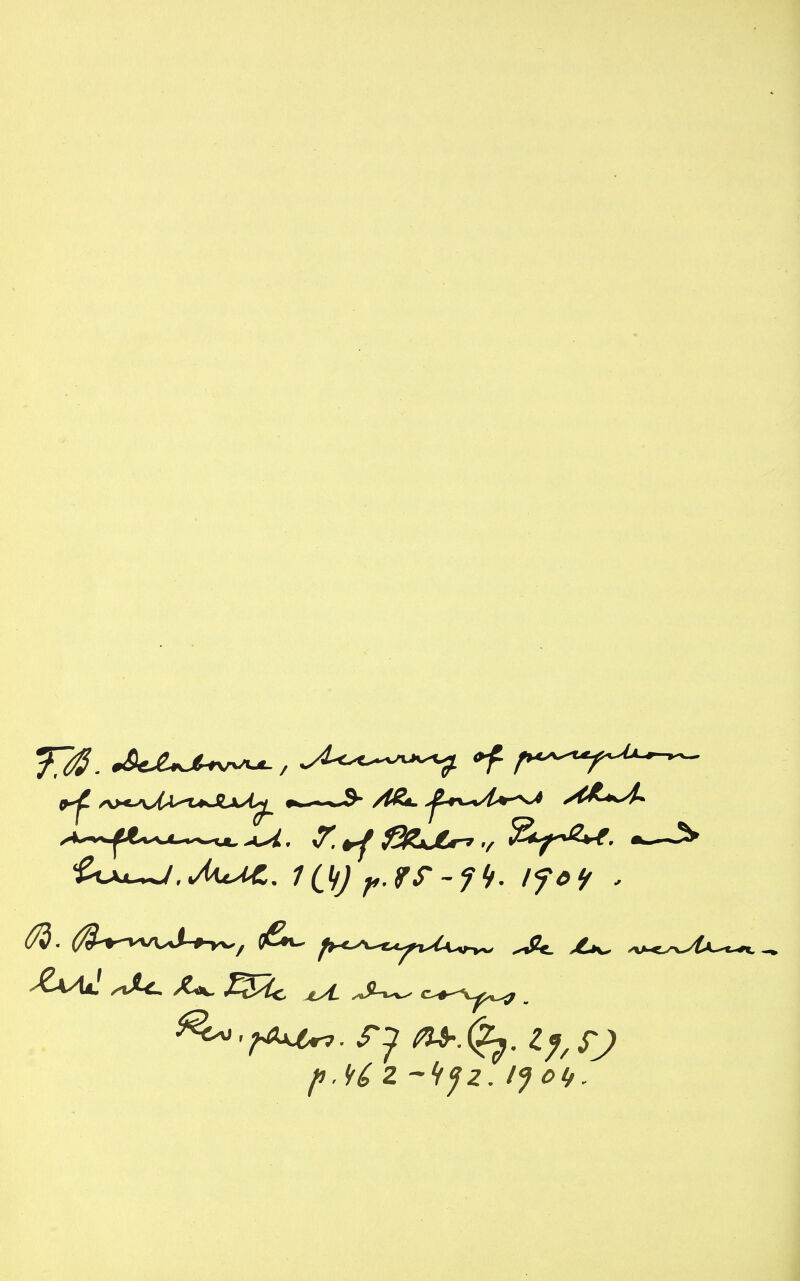 F.B. Delabarre, Accuracy of perception
of verticality and the factors that
influence it. J. of Philos., Psychol. and
Scient. Meth. 1(4) p.85-94. 1904.
B. Bourdon, La perception de la vertica-
lité de la tête et du corps.
Rev. philos. 57 Bd. (29,5)
p.462-492. 1904.